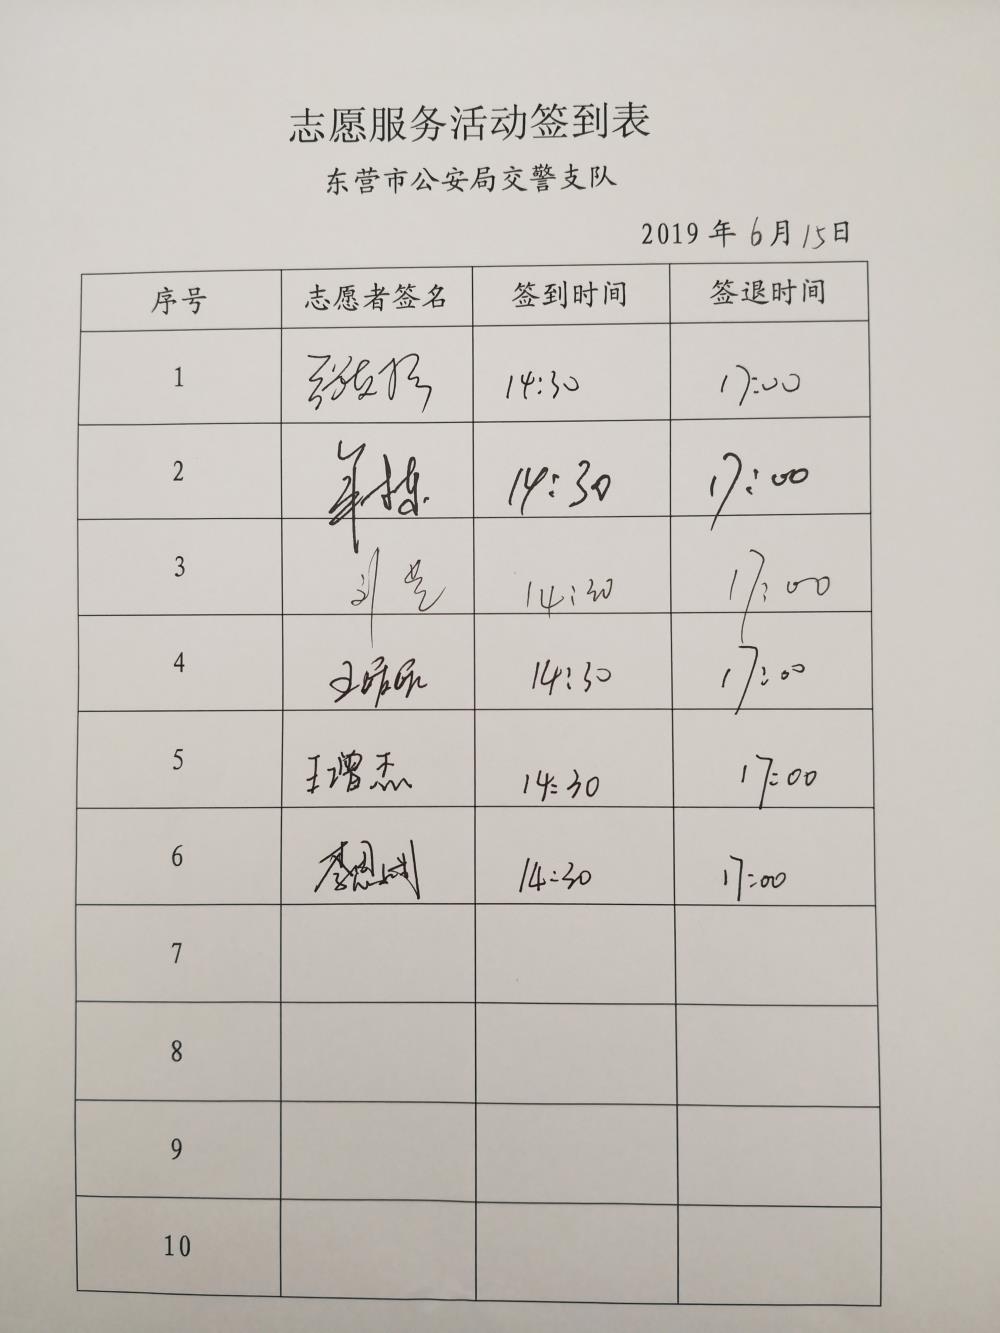 志愿服务活动签到表
东营市公安局交警支队
2019 年 6 月 15 日
序号 志愿者签名 签到时间 签退时间
1 14:30 17:00
2 14:30 17:00
3 14:30 17:00
4 14:30 17:00
5 王增杰 14:30 17:00
6 14:30 17:00
7
8
9
10